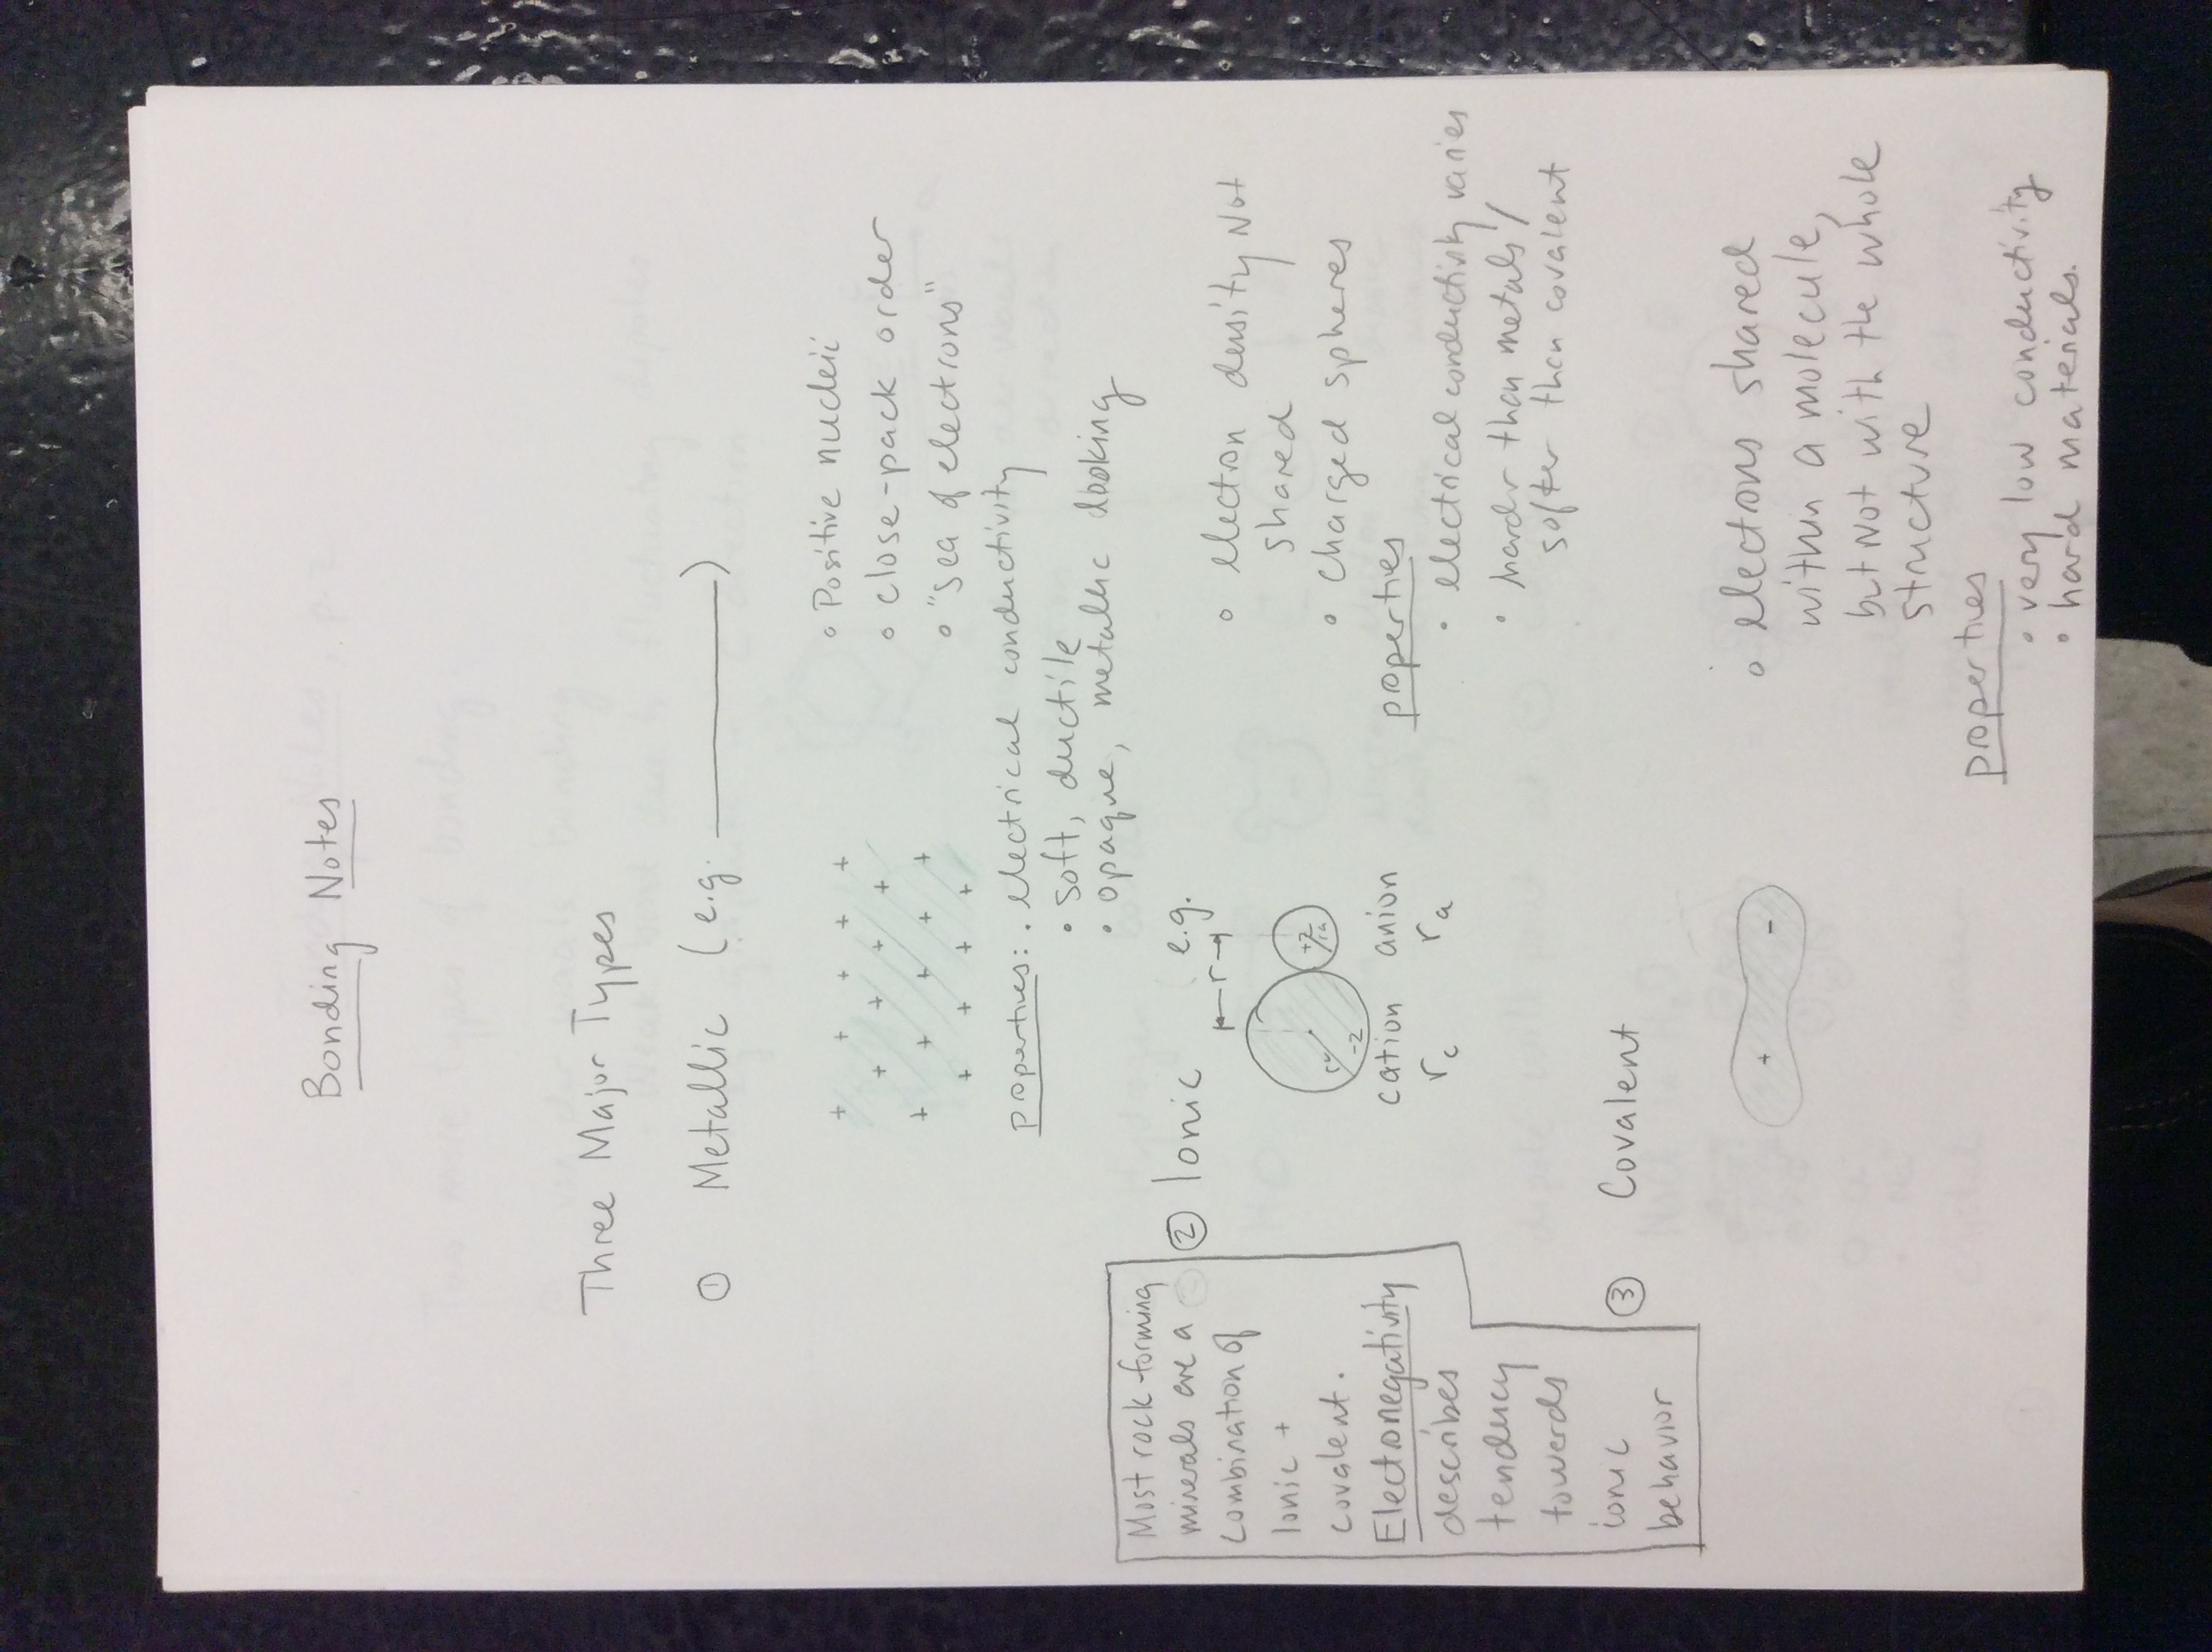 Bonding Notes
Three Major Types
① Metallic (e.g. ________)
+ + + + +
+ + + +
+ + + + +
+ + + +
° Positive nucleii
° close-pack order
° "sea of electrons"
properties: . electrical conductivity
• soft, ductile
• opaque, metallic looking
Most rock-forming
minerals are a
combination of
Ionic +
covalent.
Electronegativity
describes
tendency
towards
ionic
behavior
② Ionic e.g.
r
-2
+2
ra
cation anion
rc ra
° electron density Not
shared
° Charged spheres
properties
• electrical conductivity varies
• harder than metals /
softer than covalent
③ Covalent
+ -
° electrons shared
within a molecule,
but Not with the whole
structure
properties
• very low conductivity
• hard materials.
Two more types of bonding
van der waals bonding
- Weak bond due to fluctuating dipoles